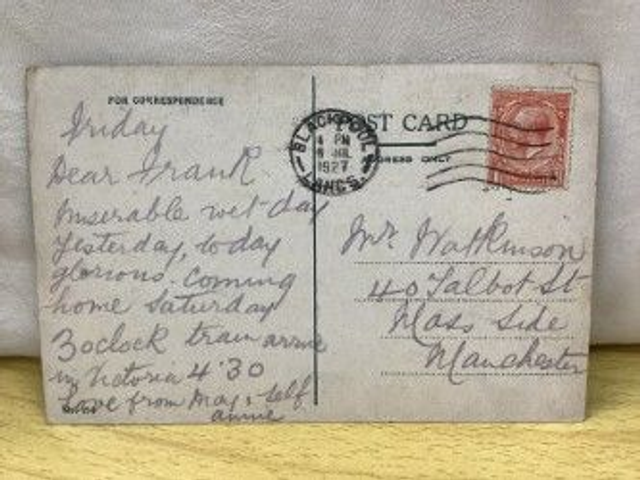 FOR CORRESPONDENCE
Friday
Dear Frank
Miserable wet day
yesterday, today
glorious. Coming
home Saturday
3oclock train arrive
in Victoria 4.30
Love from May & self
annie
POST CARD
ADDRESS ONLY
BLACKPOOL
4 PM
JUL
1927
LANCS.
Mr. Watkinson
40 Talbot St
Moss Side
Manchester